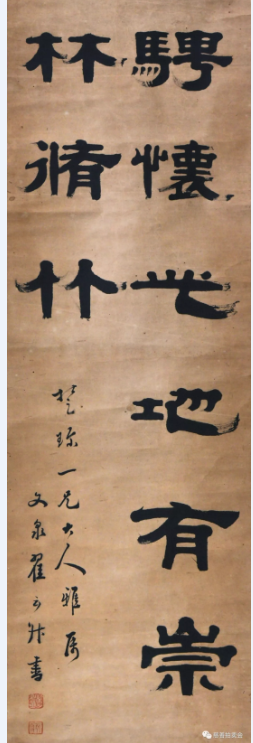 騁懷此地有崇
林脩竹
楚珍一兄大人雅屬
文泉翟云升書